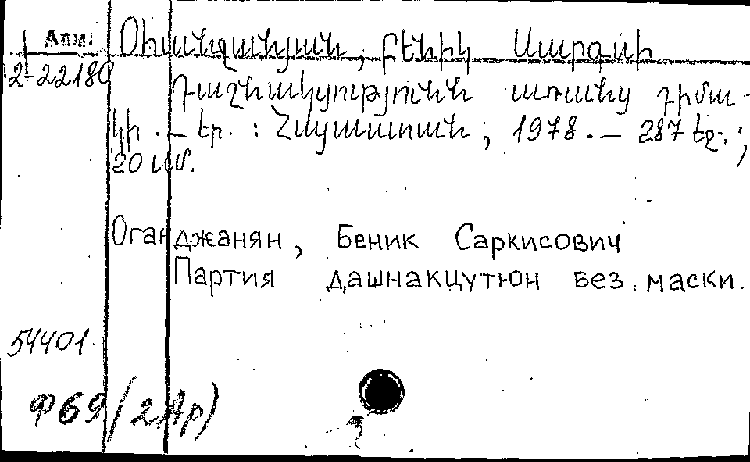 Арм.
2-22180
Օհանջանյան, Բենիկ Սարգսի
Դաշնակցությունն առանց դիմա-
կի. — Եր. : Հայաստան, 1978. — 287 էջ. ;
20 սմ.
Оганджанян, Беник Саркисович
Партия дашнакцутюн без маски.
54401
Ф69/2Ар)